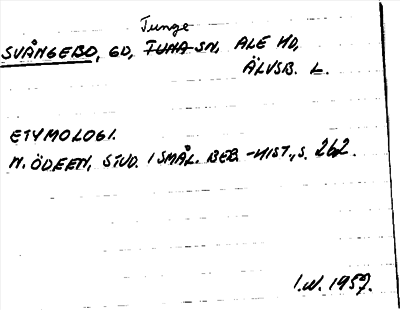 Tunge
SVÅNGEBO, GD, TUNA SN, ALE HD,
ÄLVSB. L.
ETYMOLOGI.
N. ÖDEEN, STUD. I SMÅL. BEB.-HIST., S. 262.
I.N. 1957.